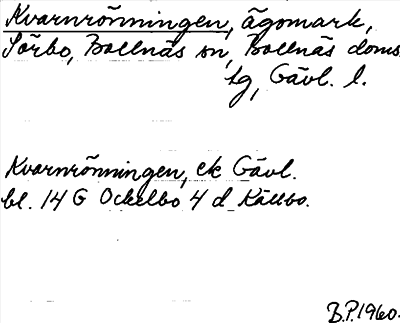 Kvarnrönningen, ägomark,
Sörbo, Bollnäs sn, Bollnäs doms.
lg, Gävl. l.
Kvarnrönningen, ek Gävl.
bl. 14 G Ockelbo 4 d Källbo.
B.P. 1960.